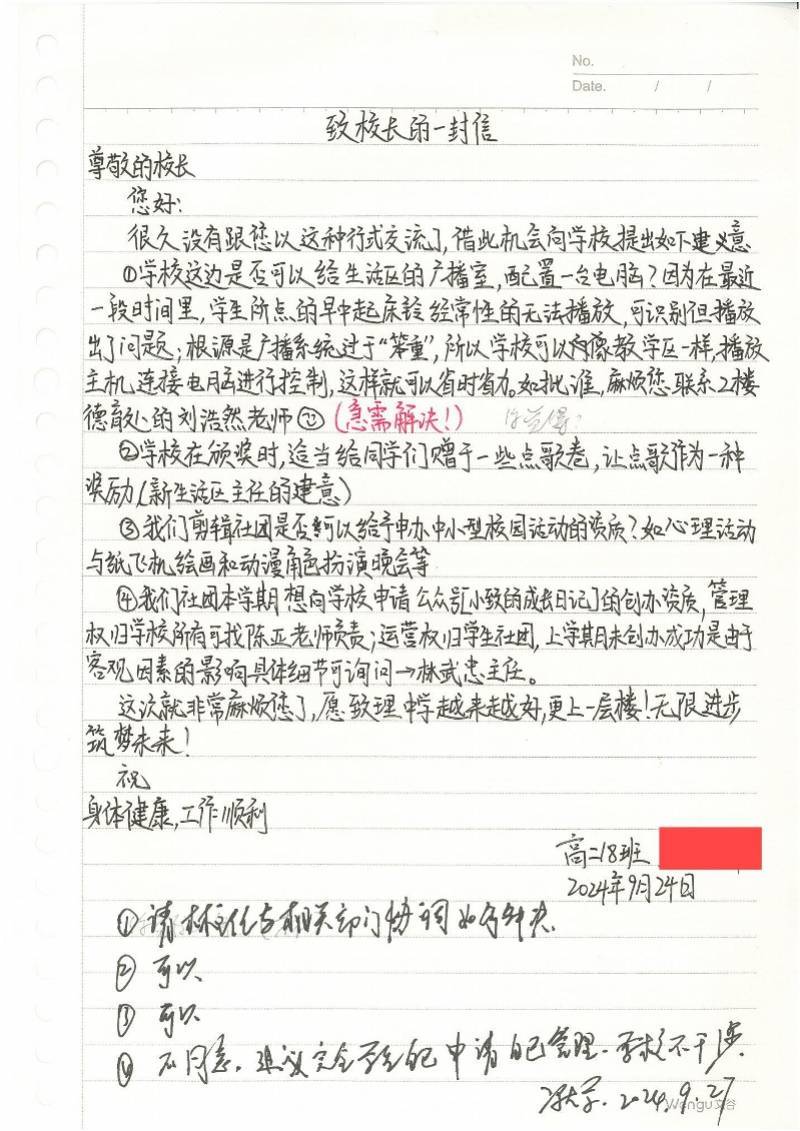 No.
Date. / /
致校长的一封信
尊敬的校长
您好:
很久没有跟您以这种行式交流了,借此机会向学校提出如下建义意
①学校这边是否可以给生活区的广播室,配置一台电脑?因为在最近
一段时间里,学生所点的早中起床铃经常性的无法播放,可识别但播放
出了问题;根源是广播系统过于“笨重”,所以学校可以像教学区一样,播放
主机连接电脑进行控制,这样就可以省时省力。如批准,麻烦您联系2楼
德育处的刘浩然老师 (急需解决!)
②学校在颁奖时,适当给同学们赠于一些点歌卷,让点歌作为一种
奖励(新生活区主任的建意)
③我们剪辑社团是否可以给予申办中小型校园活动的资质?如心理活动
与纸飞机绘画和动漫角色扮演晚会等
④我们社团本学期想向学校申请公众号[小致的成长日记]的创办资质,管理
权归学校所有可找陈亚老师负责;运营权归学生社团,上学期未创办成功是由于
客观因素的影响具体细节可询问→林武忠主任。
这次就非常麻烦您了,愿致理中学越来越好,更上一层楼!无限进步
筑梦未来!
祝
身体健康,工作顺利
高二18班
2024年9月24日
①请林主任与相关部门协调如何解决.
②可以
③可以
④不同意.建议完全学生自己申请自己管理.学校不干涉.
2024.9.27
Wengu文谷